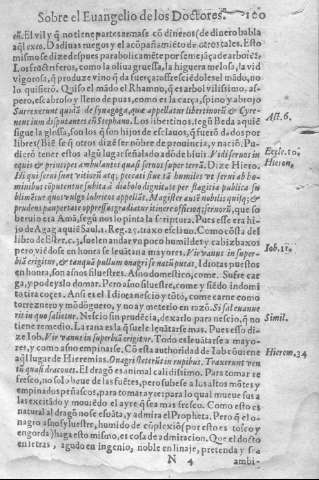 Sobre el Euangelio de los Doctores. 100
ell. El vil y q̃ no tiene partes armase cõ dineros (de dinero habla
aql exeo. Da dinas ruegos y el acõpañamiẽto de otros tales. Esto
mismo se dize despues parabolicamẽte por semejãça de arboles.
Los fructiferos, como la oliua gruessa, la higuera melosa, la vid
vigorosa, q̃ produze vino q̃ da fuerças ofrescieõdoles el mãdo, no
lo quisierõ. Quiso el mãdo el Rhamno, q̃ es arbol vilissimo, as-
pero, escabroso y lleno de puas, como es la çarça, spino y abrojo
Surrexerunt quidã de synagoga, que appellatur libertinorũ & Cyre-
nensium disputantes cũ Stephano. Los libertinos, segũ Beda aquiẽ
sigue la glossa, son los q̃ son hijos de esclauos, q̃ fuerõ dados por
libres (Biẽ se q̃ otros dizẽ ser nõbre de prouincia, y nació. Pu-
diero tener estos algũ lugar señalado adõde biuir. Vidi seruos in
equis & principes ambulantes quasi seruos super terrã. Dize Hiero.
Hi qui serui sunt vitiorũ atq; peccati siue tã humiles vt serui ab ho-
minibus cõputentur subito à diabolo dignitate per flagitia publica su
blimẽtur quos vulgo lubricos appellãt. Magister autẽ nobilis quisq; &
prudens paupertate oppressus gradiatur itinere officioq; seruorũ, que so
beruio era Amã, segũ nos lo pinta la scriptura. Pues esse era hi-
jo de Agag aquiẽ Saul 1. Reg. 25. traxo esclauo. Como cõsta del
libro de Ester. c. 3. suelen andar vn poco humildes y cabizbaxos
pero viẽdose en honra se leuãtan a mayores. Vir vanus in super-
biã erigitur, & tanquã pullum onagri se natũ putat. Idiotas puestos
en honra, son asnos siluestres. Asno domestico, come. Sufre car
ga, y podeys lo domar. Pero asno siluestre, come y siẽdo indomi
to tira coçes. Ansi es el Idiota nescio y tõto, come carne como
torreznero y mõdõguero, y no ay meterlo en razõ. Si sal euanue
rit in quo salietur. Nescio sin prudẽcia, dexarlo para nescio, q̃ no
tiene remedio. La rana es la q̃ suele leuãtarse mas. Pues esto di-
ze Iob. Vir vanus in superbiã erigitur. Todo es leuãtarse a mayo-
res, y como asno empinarse. Cõ esta authoridad de Iob cõuiene
aql lugar de Hieremias. Onagri steterũt in rupibus. Traxerunt ven
tũ quasi dracones. El dragõ es animal calidissimo. Para tomar re
fresco, no solo beue de las fuẽtes, pero subese a los altos mõtes y
empinados peñascos, para tomar ayre: para lo qual mueue sus a
las excitãdo y mouiẽdo el ayre q̃ sea mas fresco. Como esto es
natural al dragõ no se espãta, y admira el Propheta. Pero q̃ el o-
nagro asno syluestre, humido de cõplexiõ (por esto es tosco y
engorda) haga esto mismo, es cosa de admiracion. Que el docto
en letras, agudo en ingenio, noble en linaje, pretenda y sea
N 4 ambi-
Act. 6,
Eccle. 10,
Hieron,
Iob. 11.
Simil.
Hierem, 34